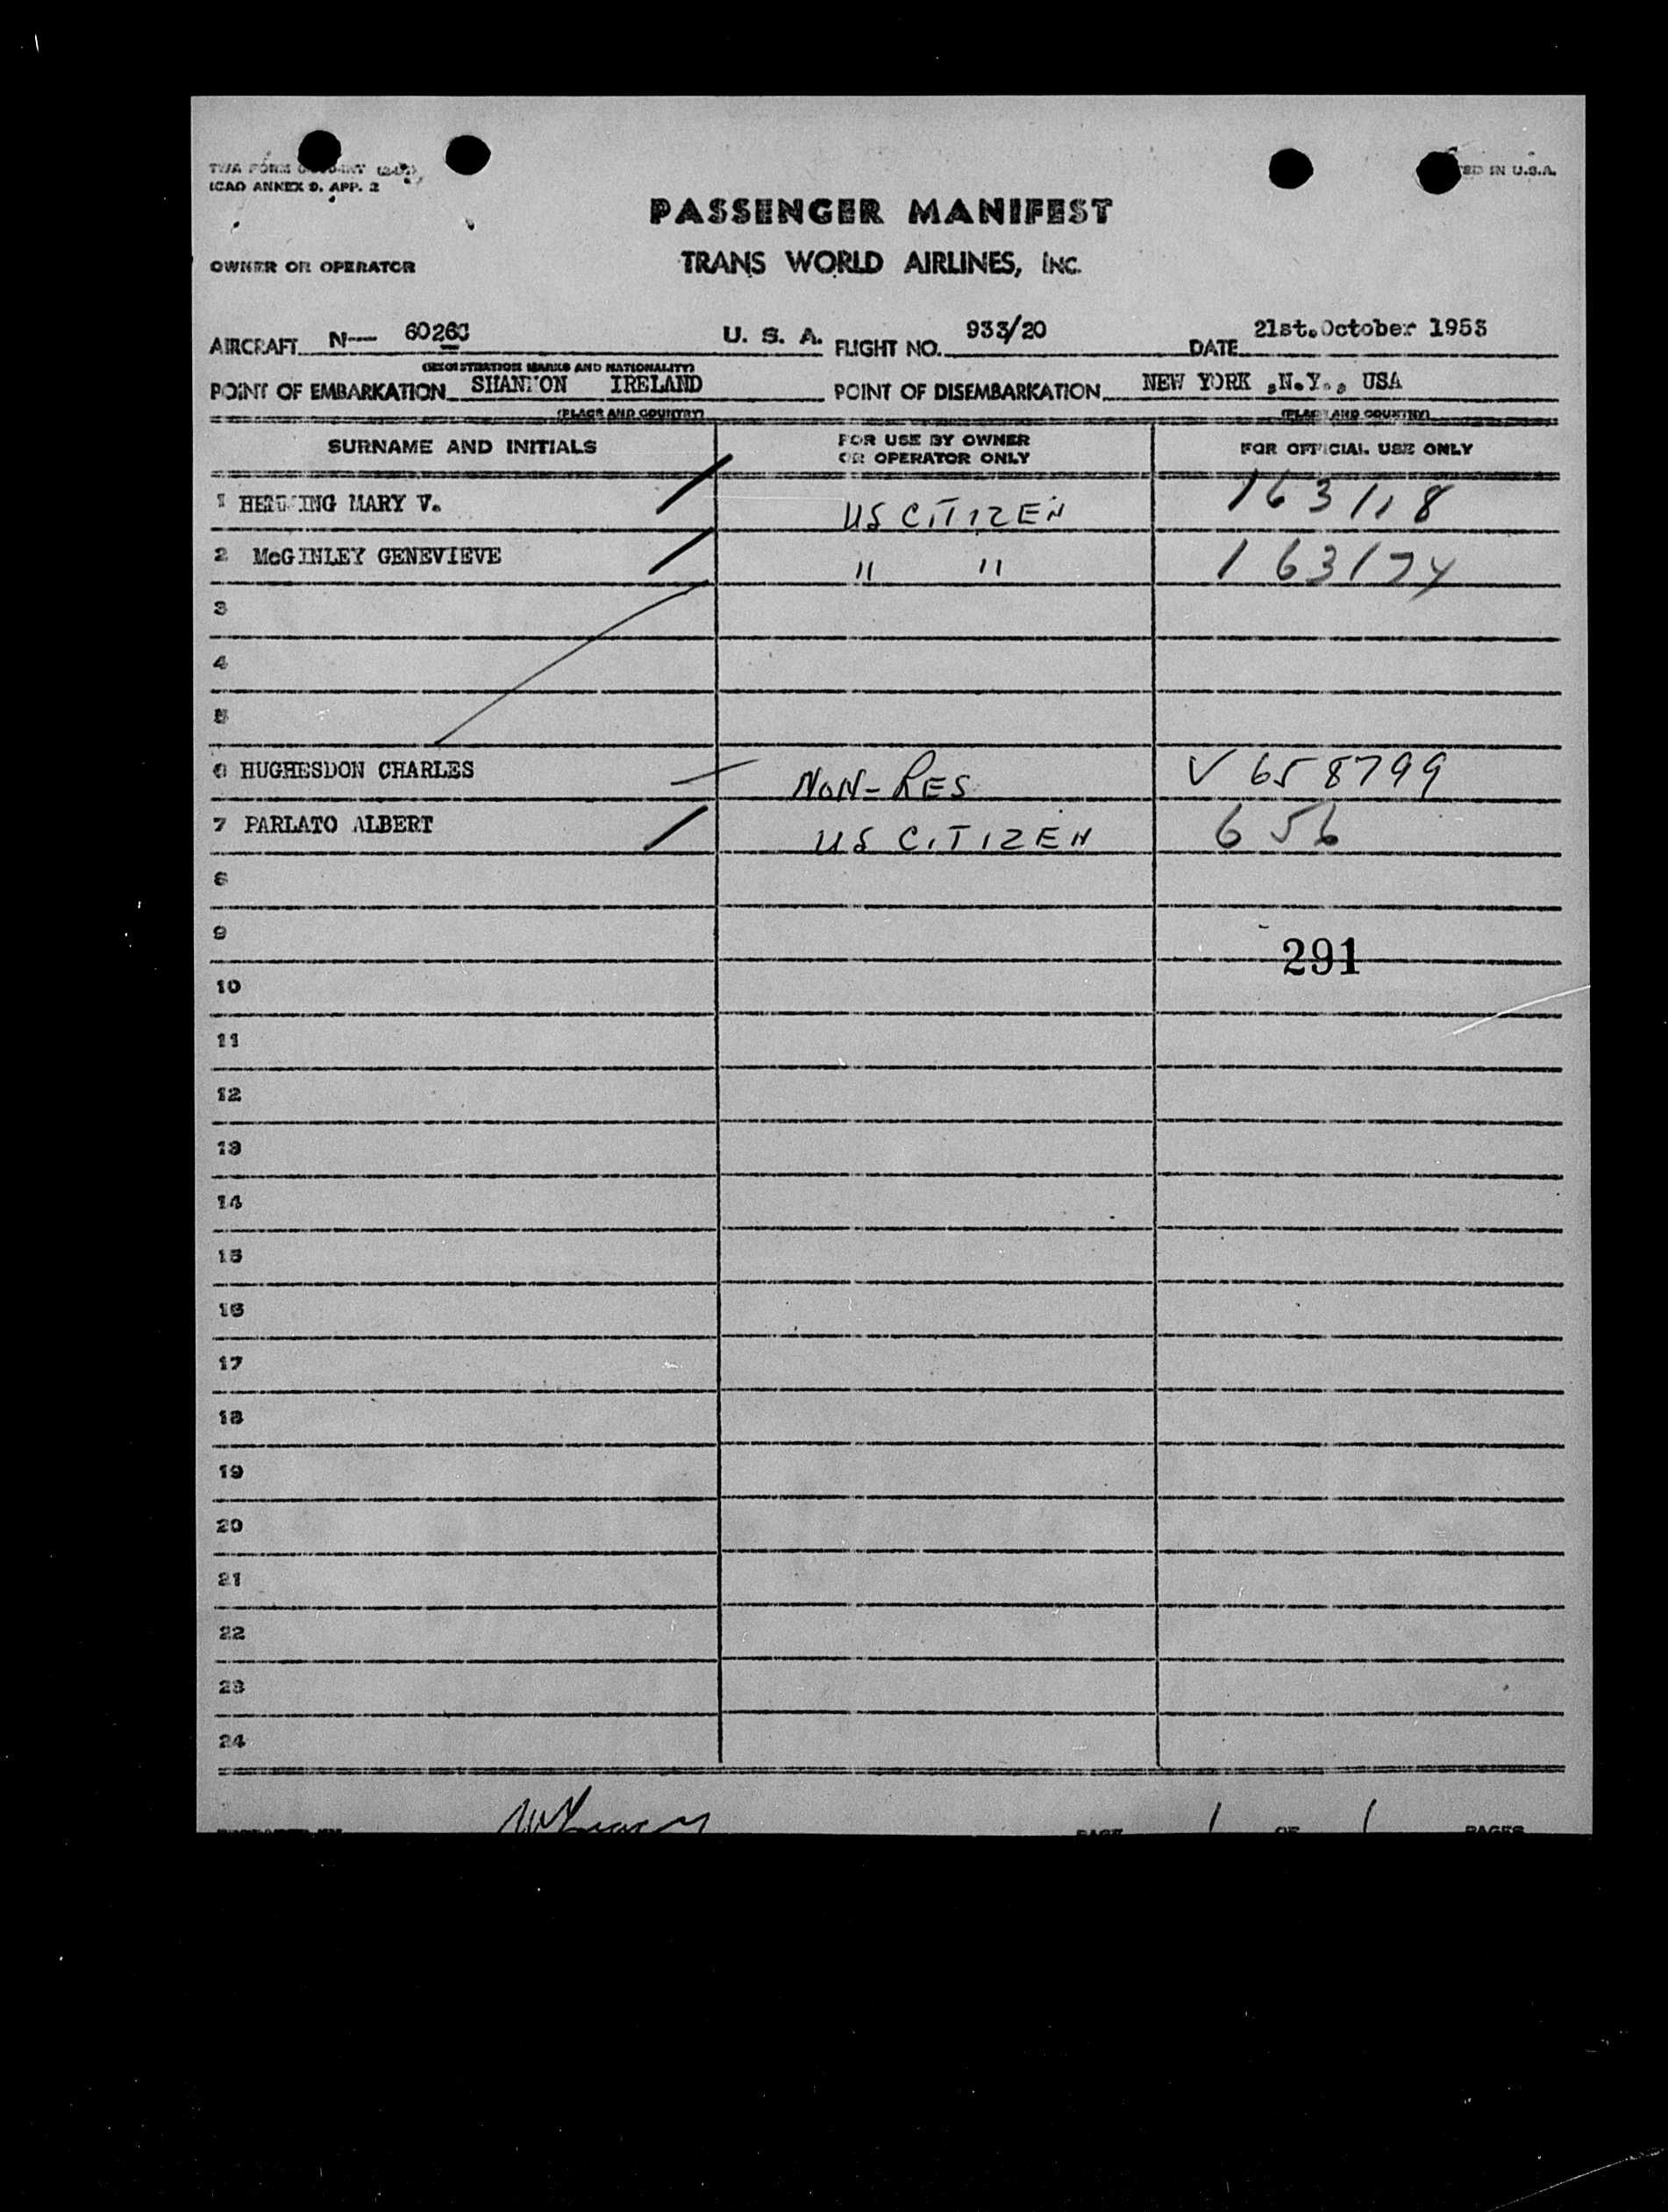 TWA FORM
ICAO ANNEX 9, APP. 2
IN U.S.A.
PASSENGER MANIFEST
OWNER OR OPERATOR TRANS WORLD AIRLINES, INC.
AIRCRAFT N— U. S. A. FLIGHT NO. 933/20 DATE 21st.October 1953
(REGISTRATION MARKS AND NATIONALITY)
POINT OF EMBARKATION SHANNON IRELAND POINT OF DISEMBARKATION NEW YORK ,N.Y., USA
(PLACE AND COUNTRY) (PLACE AND COUNTRY)
SURNAME AND INITIALS FOR USE BY OWNER OR OPERATOR ONLY FOR OFFICIAL USE ONLY
1 MARY V. US CITIZEN
2 McGINLEY GENEVIEVE " "
3
4
5
6 HUGHESDON CHARLES NON-RES V 658799
7 PARLATO ALBERT US CITIZEN 656
8
9
291
10
11
12
13
14
15
16
17
18
19
20
21
22
23
24
PAGE 1 OF 1 PAGES